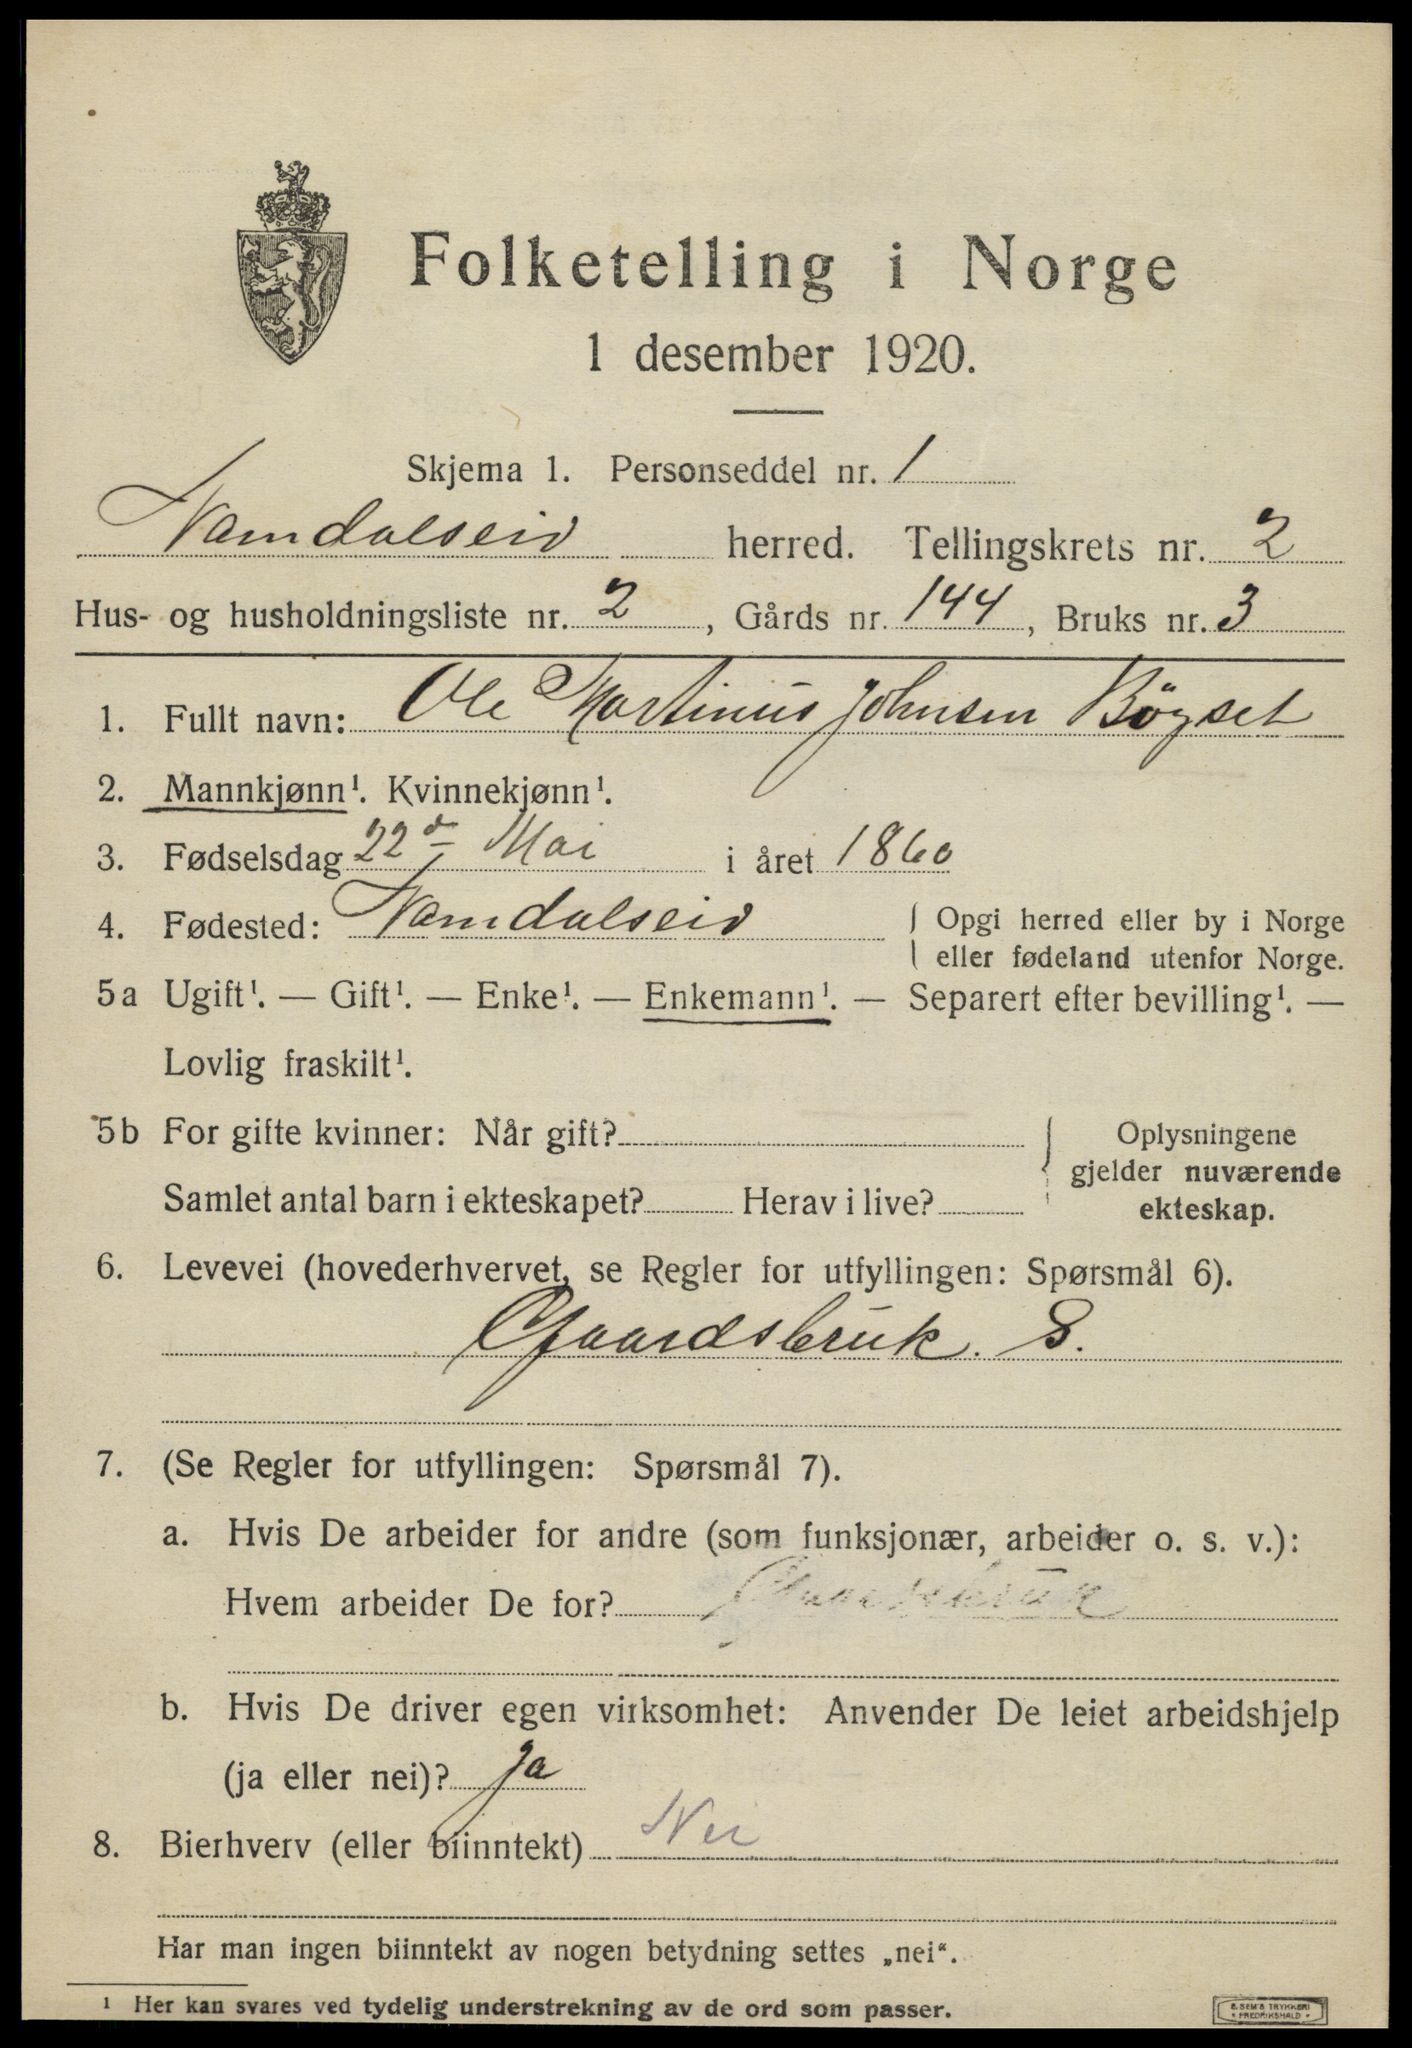 Folketelling i Norge
1 desember 1920.
Skjema 1. Personseddel nr. 1
Namdalseid herred. Tellingskrets nr. 2
Hus- og husholdningsliste nr. 2, Gårds nr. 144, Bruks nr. 3
1. Fullt navn: Ole Martinus Johnsen Bögset
2. Mannkjønn¹. Kvinnekjønn¹.
3. Fødselsdag 22d Mai i året 1860
4. Fødested: Namdalseid { Opgi herred eller by i Norge
eller fødeland utenfor Norge.
5a Ugift¹. — Gift¹. — Enke¹. — Enkemann¹. — Separert efter bevilling¹. —
Lovlig fraskilt¹.
5b For gifte kvinner: Når gift?
Samlet antal barn i ekteskapet? Herav i live?
Oplysningene
gjelder nuværende
ekteskap.
6. Levevei (hovederhvervet, se Regler for utfyllingen: Spørsmål 6).
Gaardsbruk. S.
7. (Se Regler for utfyllingen: Spørsmål 7).
a. Hvis De arbeider for andre (som funksjonær, arbeider o. s. v.):
Hvem arbeider De for?
b. Hvis De driver egen virksomhet: Anvender De leiet arbeidshjelp
(ja eller nei)? Ja
8. Bierhverv (eller biinntekt) Nei
Har man ingen biinntekt av nogen betydning settes „nei“.
¹ Her kan svares ved tydelig understrekning av de ord som passer.
E. SEM'S TRYKKERI
FREDRIKSHALD